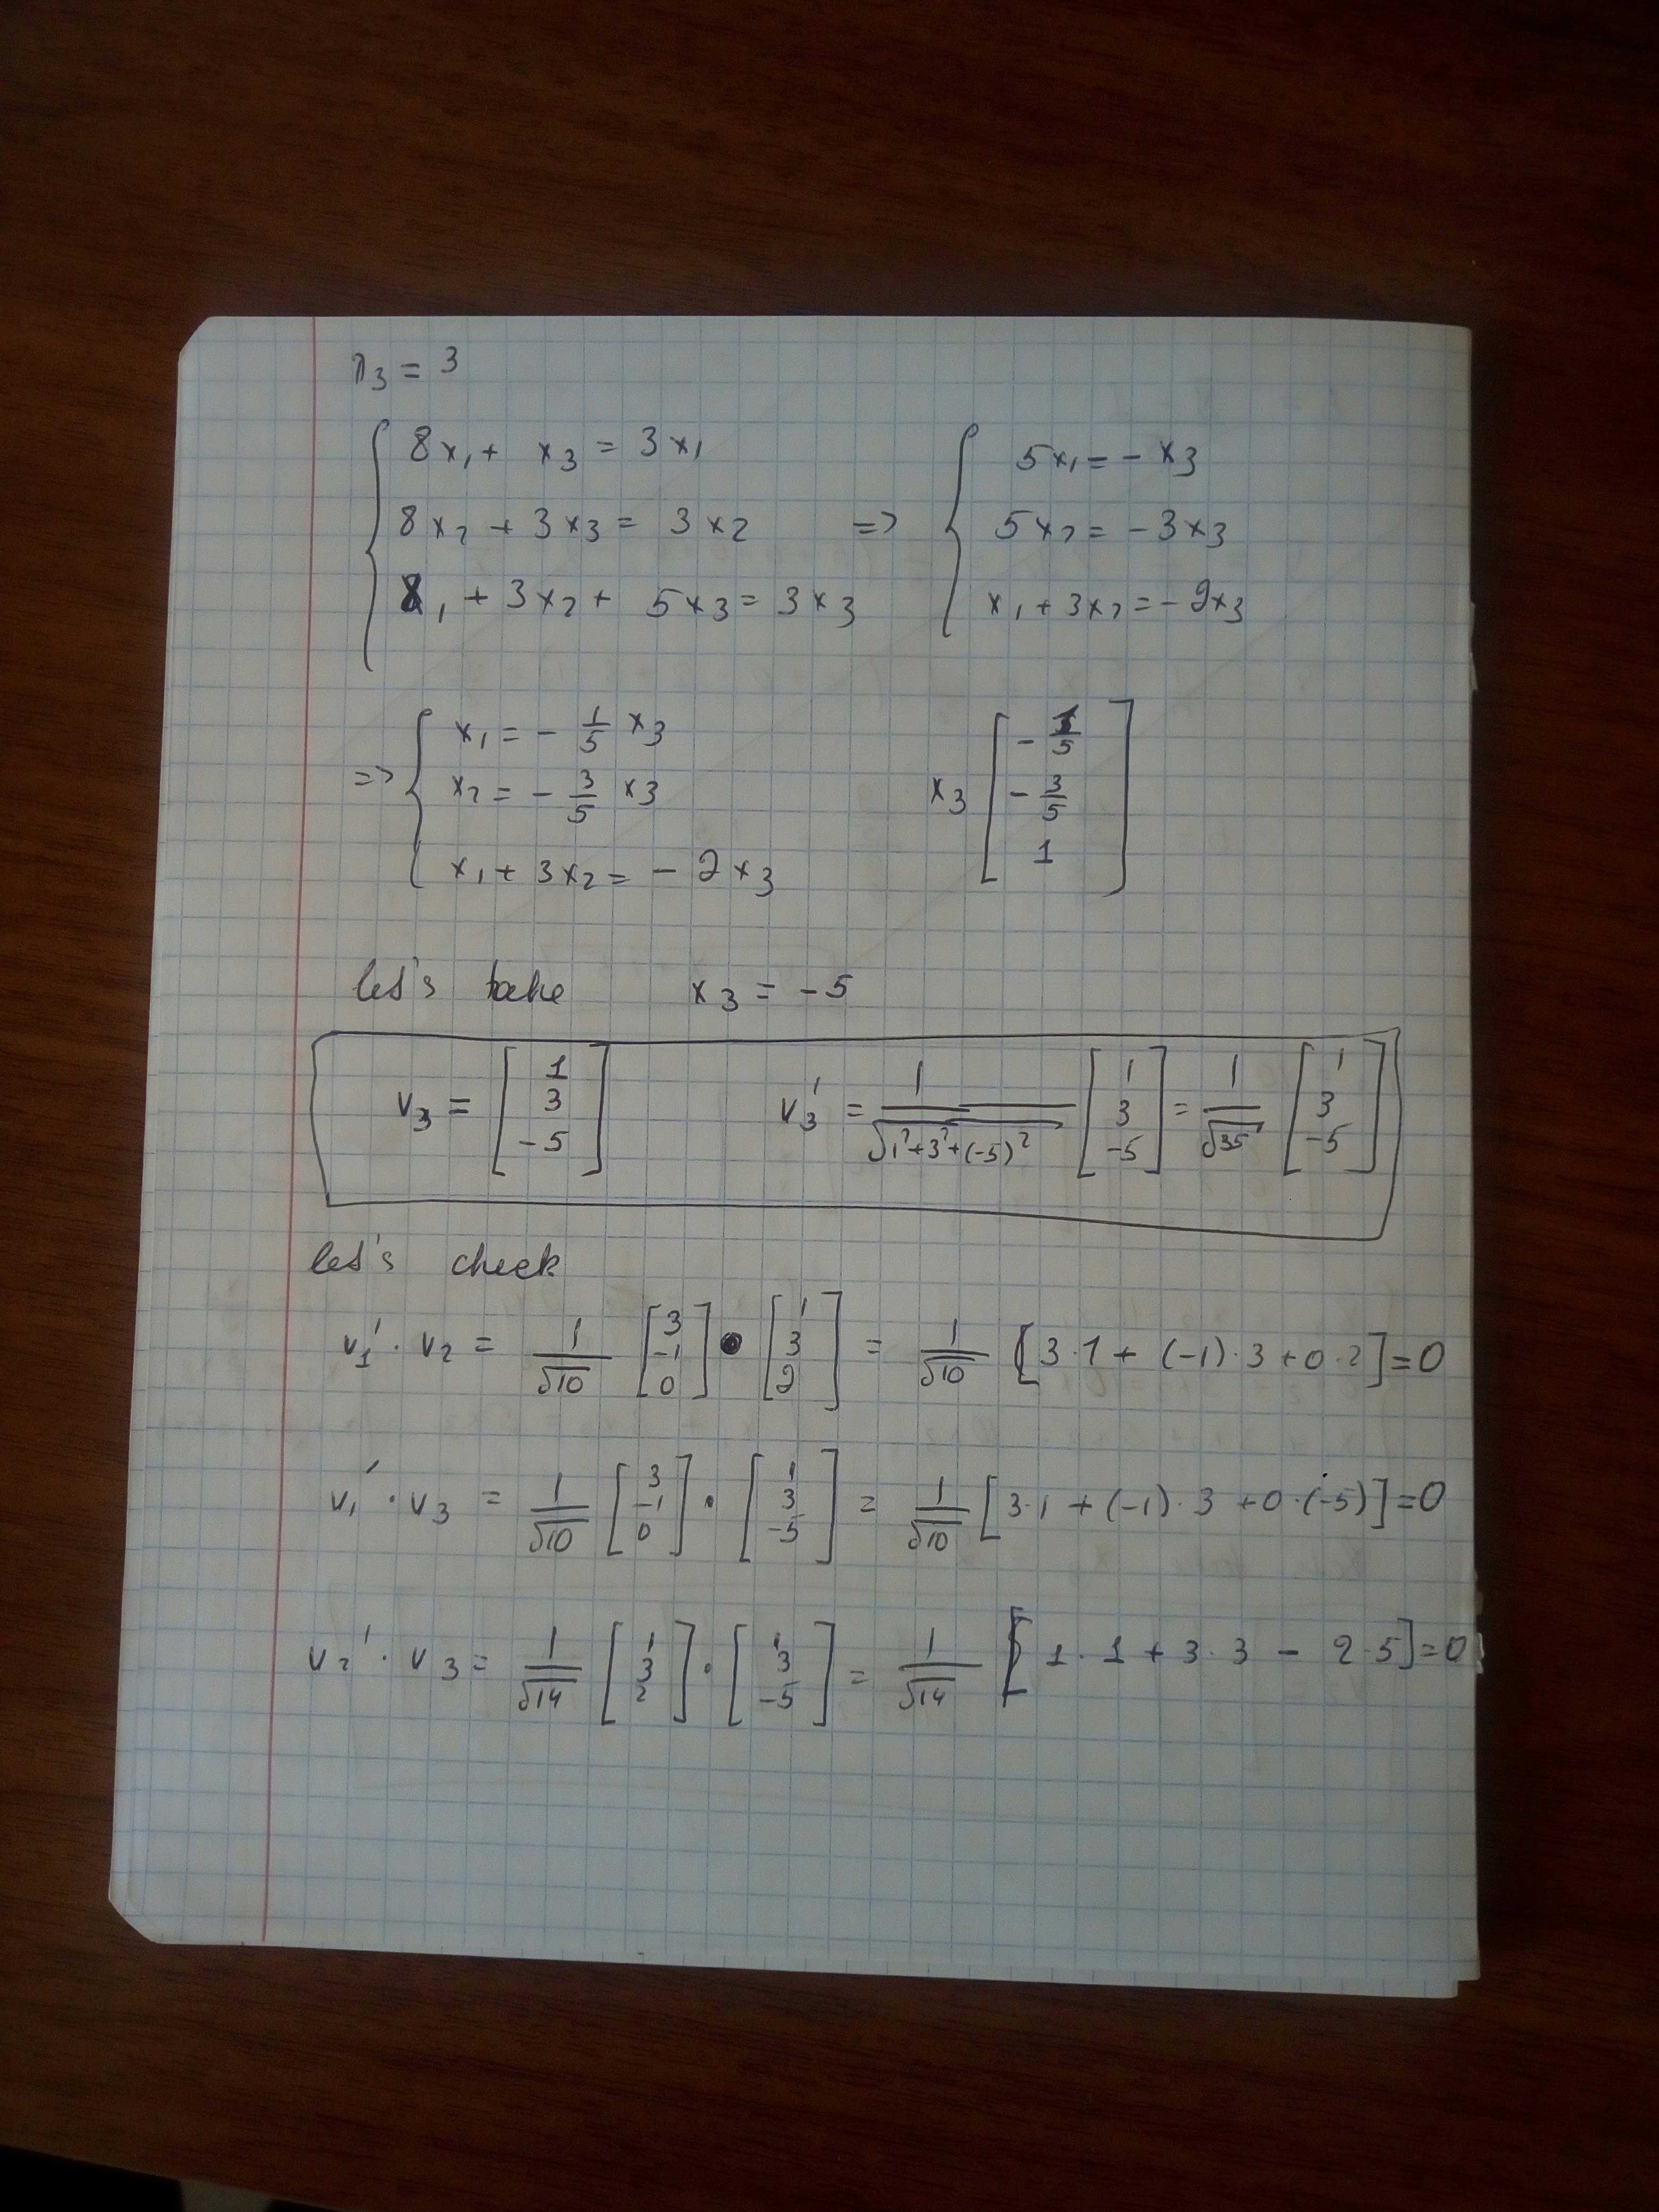 λ₃ = 3
8x₁ + x₃ = 3x₁
8x₂ + 3x₃ = 3x₂
x₁ + 3x₂ + 5x₃ = 3x₃
=>
5x₁ = - x₃
5x₂ = - 3x₃
x₁ + 3x₂ = - 2x₃
=>
x₁ = - 1/5 x₃
x₂ = - 3/5 x₃
x₁ + 3x₂ = - 2x₃
x₃ [ -1/5 ; -3/5 ; 1 ]
let's take x₃ = -5
v₃ = [ 1 ; 3 ; -5 ] v₃' = 1/√(1²+3²+(-5)²) [ 1 ; 3 ; -5 ] = 1/√35 [ 1 ; 3 ; -5 ]
let's check
v₁' · v₂ = 1/√10 [ 3 ; -1 ; 0 ] · [ 1 ; 3 ; 2 ] = 1/√10 [3·1 + (-1)·3 + 0·2] = 0
v₁' · v₃ = 1/√10 [ 3 ; -1 ; 0 ] · [ 1 ; 3 ; -5 ] = 1/√10 [3·1 + (-1)·3 + 0·(-5)] = 0
v₂' · v₃ = 1/√14 [ 1 ; 3 ; 2 ] · [ 1 ; 3 ; -5 ] = 1/√14 [1·1 + 3·3 - 2·5] = 0